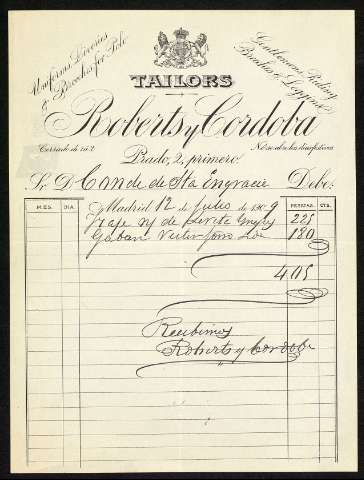 Uniforms Liveries
& Breeches for Polo
Gentlemens Riding
Breeches & Leggins
TAILORS
Roberts y Cordoba
Cerrado de 1 á 2
No se abre los dias festivos
Prado, 2, primero.
Sr. D. Conde de Sta Engracia Debe:
MES. DIA. PESETAS. CTS.
Madrid 12 de Julio de 1909
Traje de 225
Gaban 180
405
Recibimos
Roberts y Cordoba